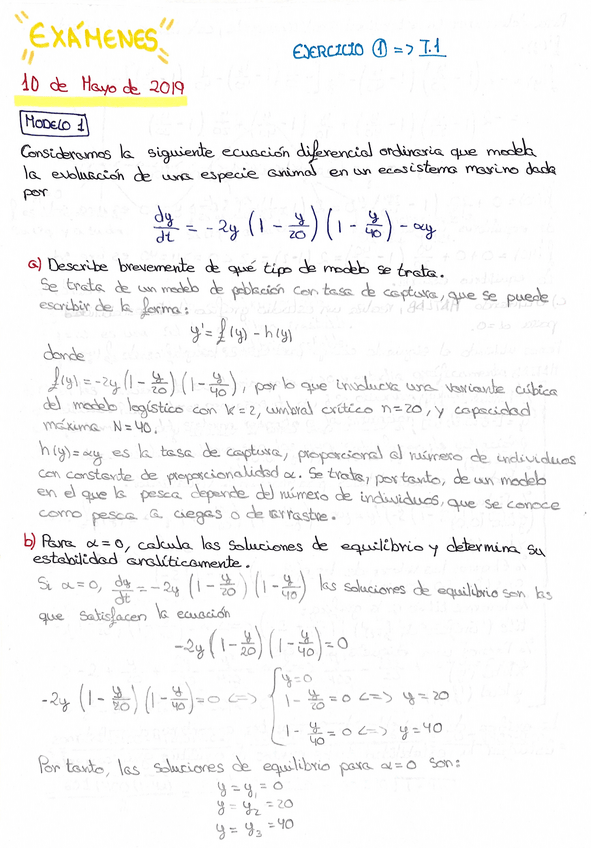 EXÁMENES
EJERCICIO ① => T.1
10 de Mayo de 2019
MODELO 1
Consideramos la siguiente ecuación diferencial ordinaria que modela
la evolución de una especie animal en un ecosistema marino dada
por
dy/dt = -2y (1 - y/20) (1 - y/40) - αy
a) Describe brevemente de qué tipo de modelo se trata.
Se trata de un modelo de población con tasa de captura, que se puede
escribir de la forma:
y' = f(y) - h(y)
donde
f(y) = -2y (1 - y/20) (1 - y/40), por lo que involucra una variante cúbica
del modelo logístico con k=2, umbral crítico n=20, y capacidad
máxima N=40.
h(y)=αy es la tasa de captura, proporcional al número de individuos
con constante de proporcionalidad α. Se trata, por tanto, de un modelo
en el que la pesca depende del número de individuos, que se conoce
como pesca a ciegas o de arrastre.
b) Para α=0, calcula las soluciones de equilibrio y determina su
estabilidad analíticamente.
Si α=0, dy/dt = -2y (1 - y/20) (1 - y/40) las soluciones de equilibrio son las
que satisfacen la ecuación
-2y (1 - y/20) (1 - y/40) = 0
-2y (1 - y/20) (1 - y/40) = 0 <=> { y=0
1 - y/20 = 0 <=> y = 20
1 - y/40 = 0 <=> y = 40
Por tanto, las soluciones de equilibrio para α=0 son:
y = y₁ = 0
y = y₂ = 20
y = y₃ = 40